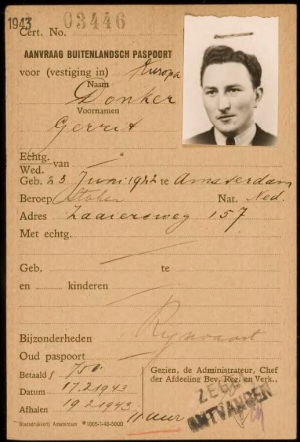 1943
Cert. No. 03446
AANVRAAG BUITENLANDSCH PASPOORT
voor (vestiging in) Europa
Naam
Donker
Voornamen
Gerrit
Echtg. van
Wed.
Geb. 23 Juni 1922 te Amsterdam
Beroep Stoker Nat. Ned.
Adres Zaaiersweg 157
Met echtg.
Geb. te
en kinderen
Bijzonderheden Rijnvaart
Oud paspoort
Betaald f 7.50
Datum 17.2.1943
Afhalen 19.2.1943
11 uur
Gezien, de Administrateur, Chef
der Afdeeling Bev. Reg. en Verk.,
ZEGEL
ONTVANGEN
Stadsdrukkerij Amsterdam